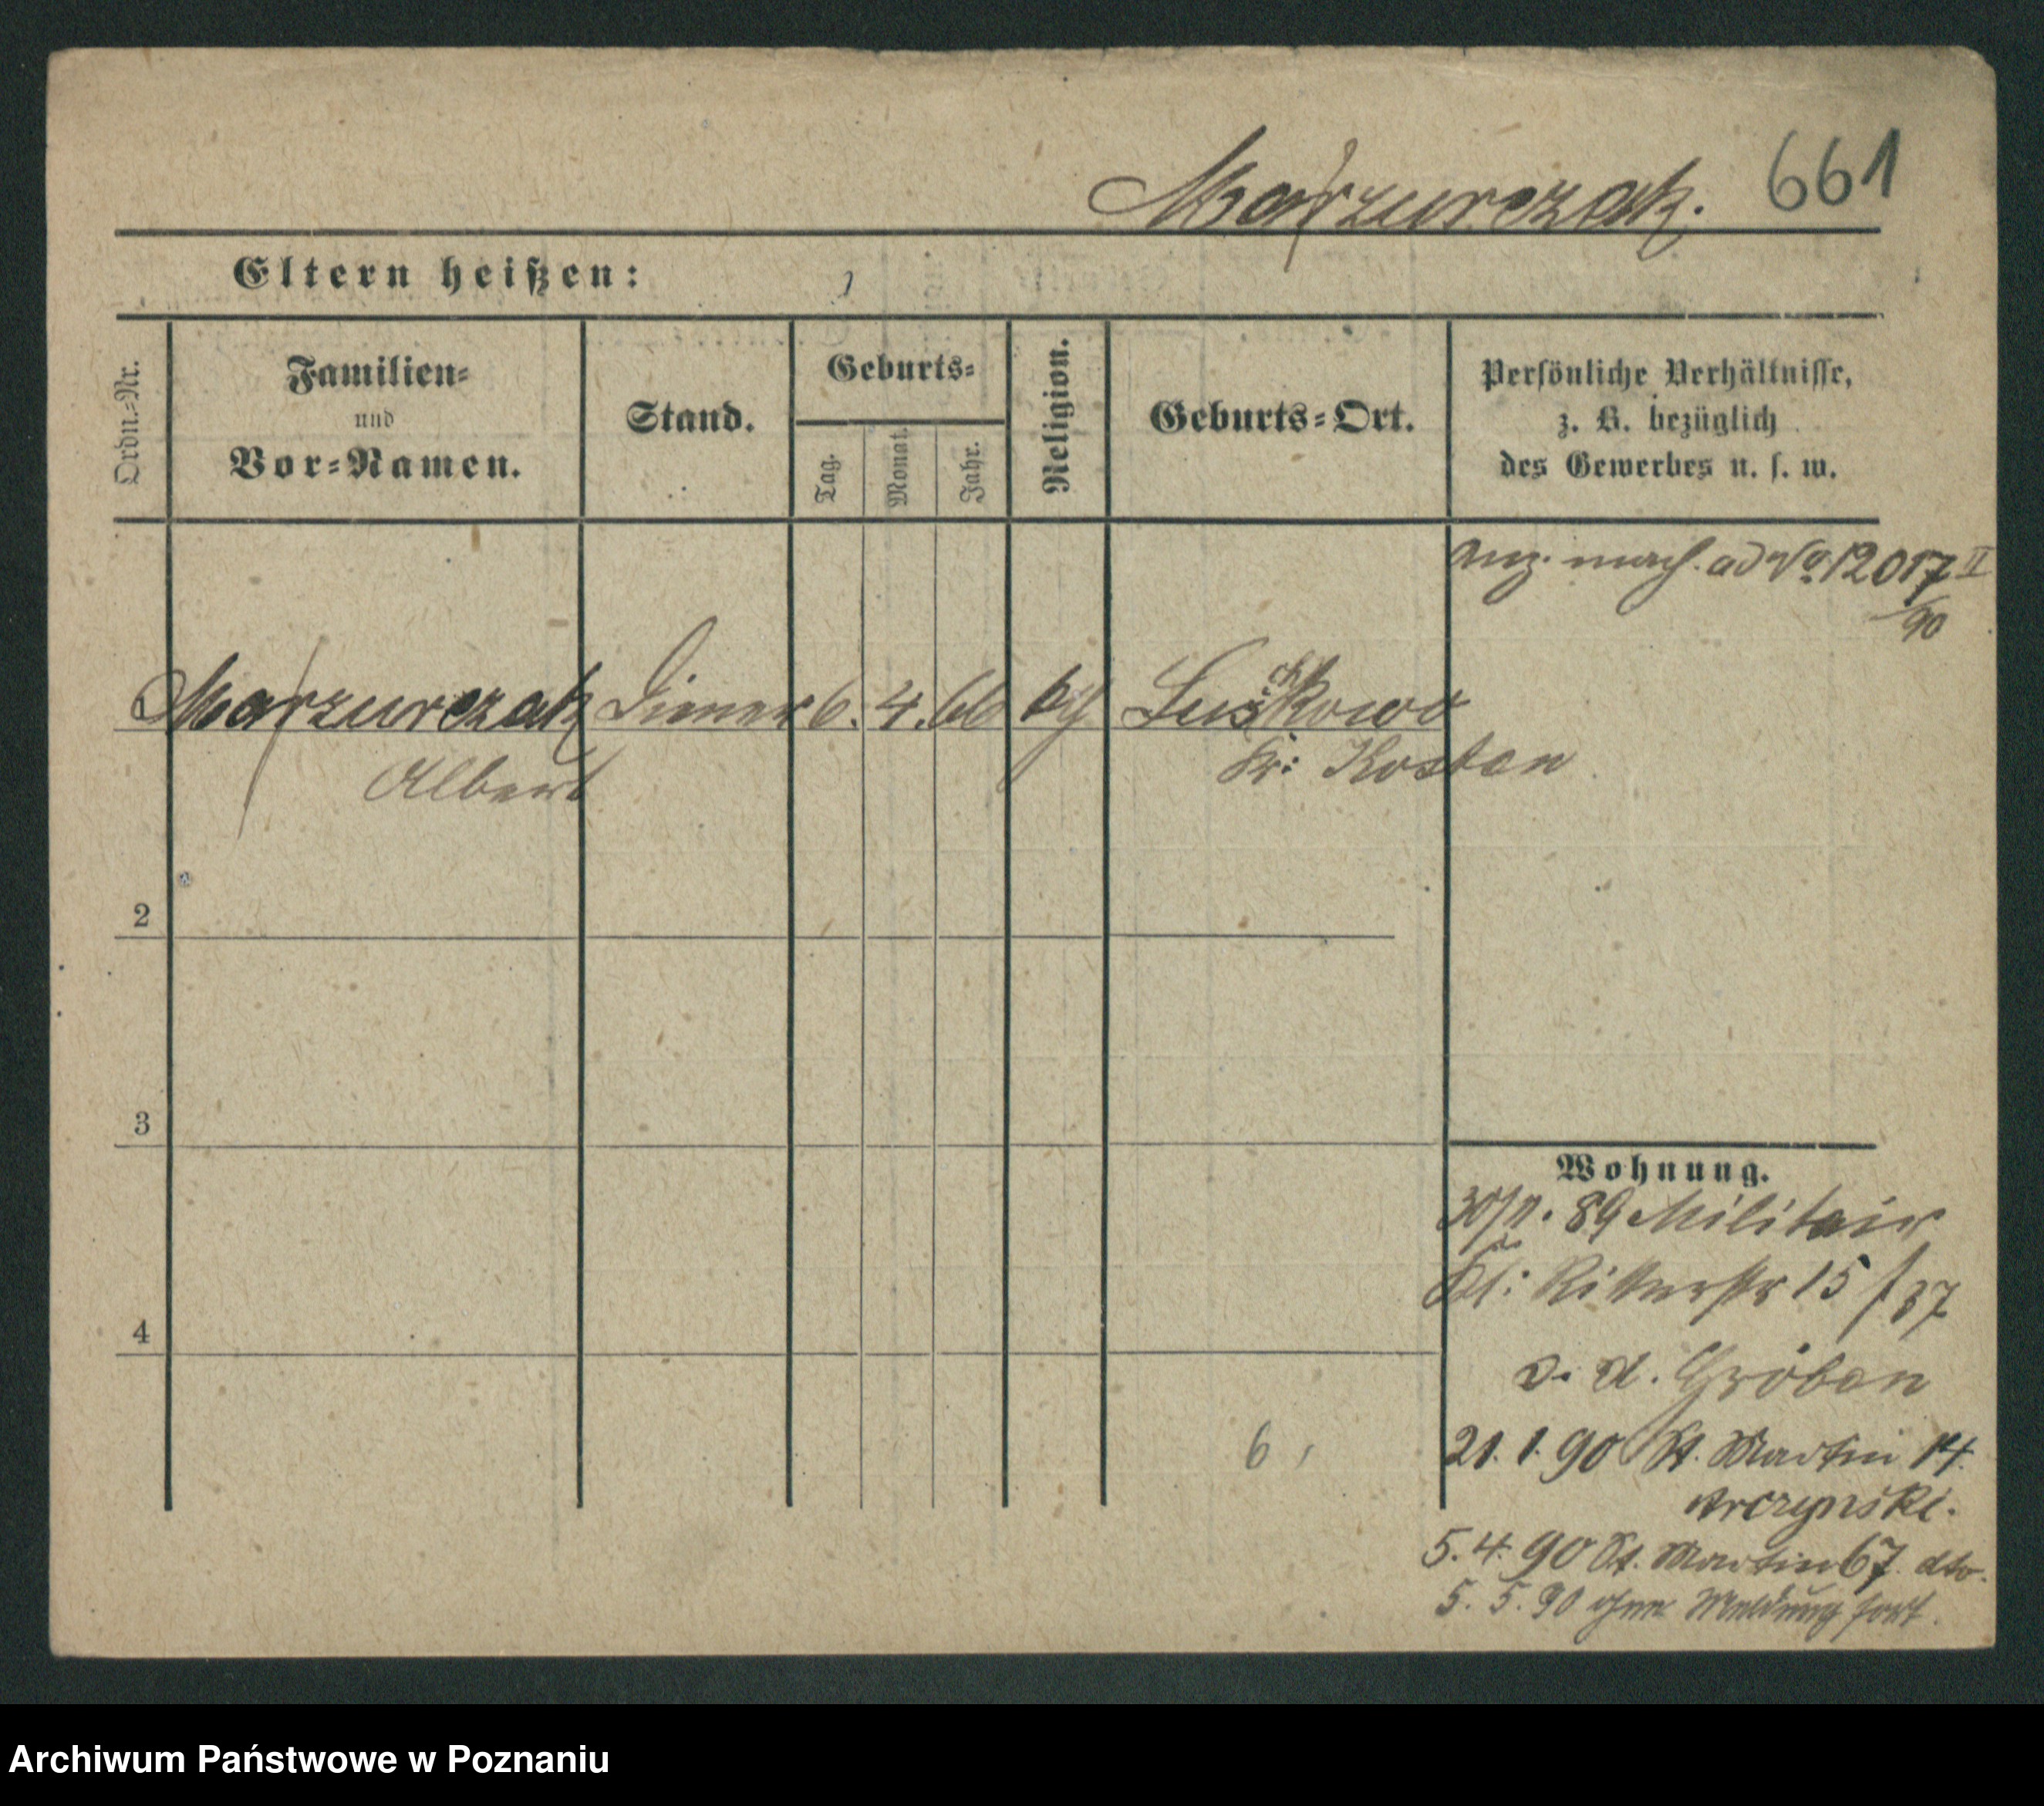 Marzurczak. 661
Eltern heißen:
Ordn.-Nr.
Familien-
und
Vor-Namen.
Stand.
Geburts-
Tag.
Monat.
Jahr.
Religion.
Geburts-Ort.
Persönliche Verhältnisse,
z. B. bezüglich
des Gewerbes u. s. w.
ad No. 12017 II
/90
Marzurczak Diener 6. 4. 66 Kr: Kostan
Albert
2
3
4
Wohnung.
89 Militair
Kl: Ritterstr 15 f 37
v. d. Gröben
6
21. 1. 90 St. Martin 14.
5. 4. 90 St. Martin 67. dto.
5. 5. 90 ohne Meldung fort.
Archiwum Państwowe w Poznaniu